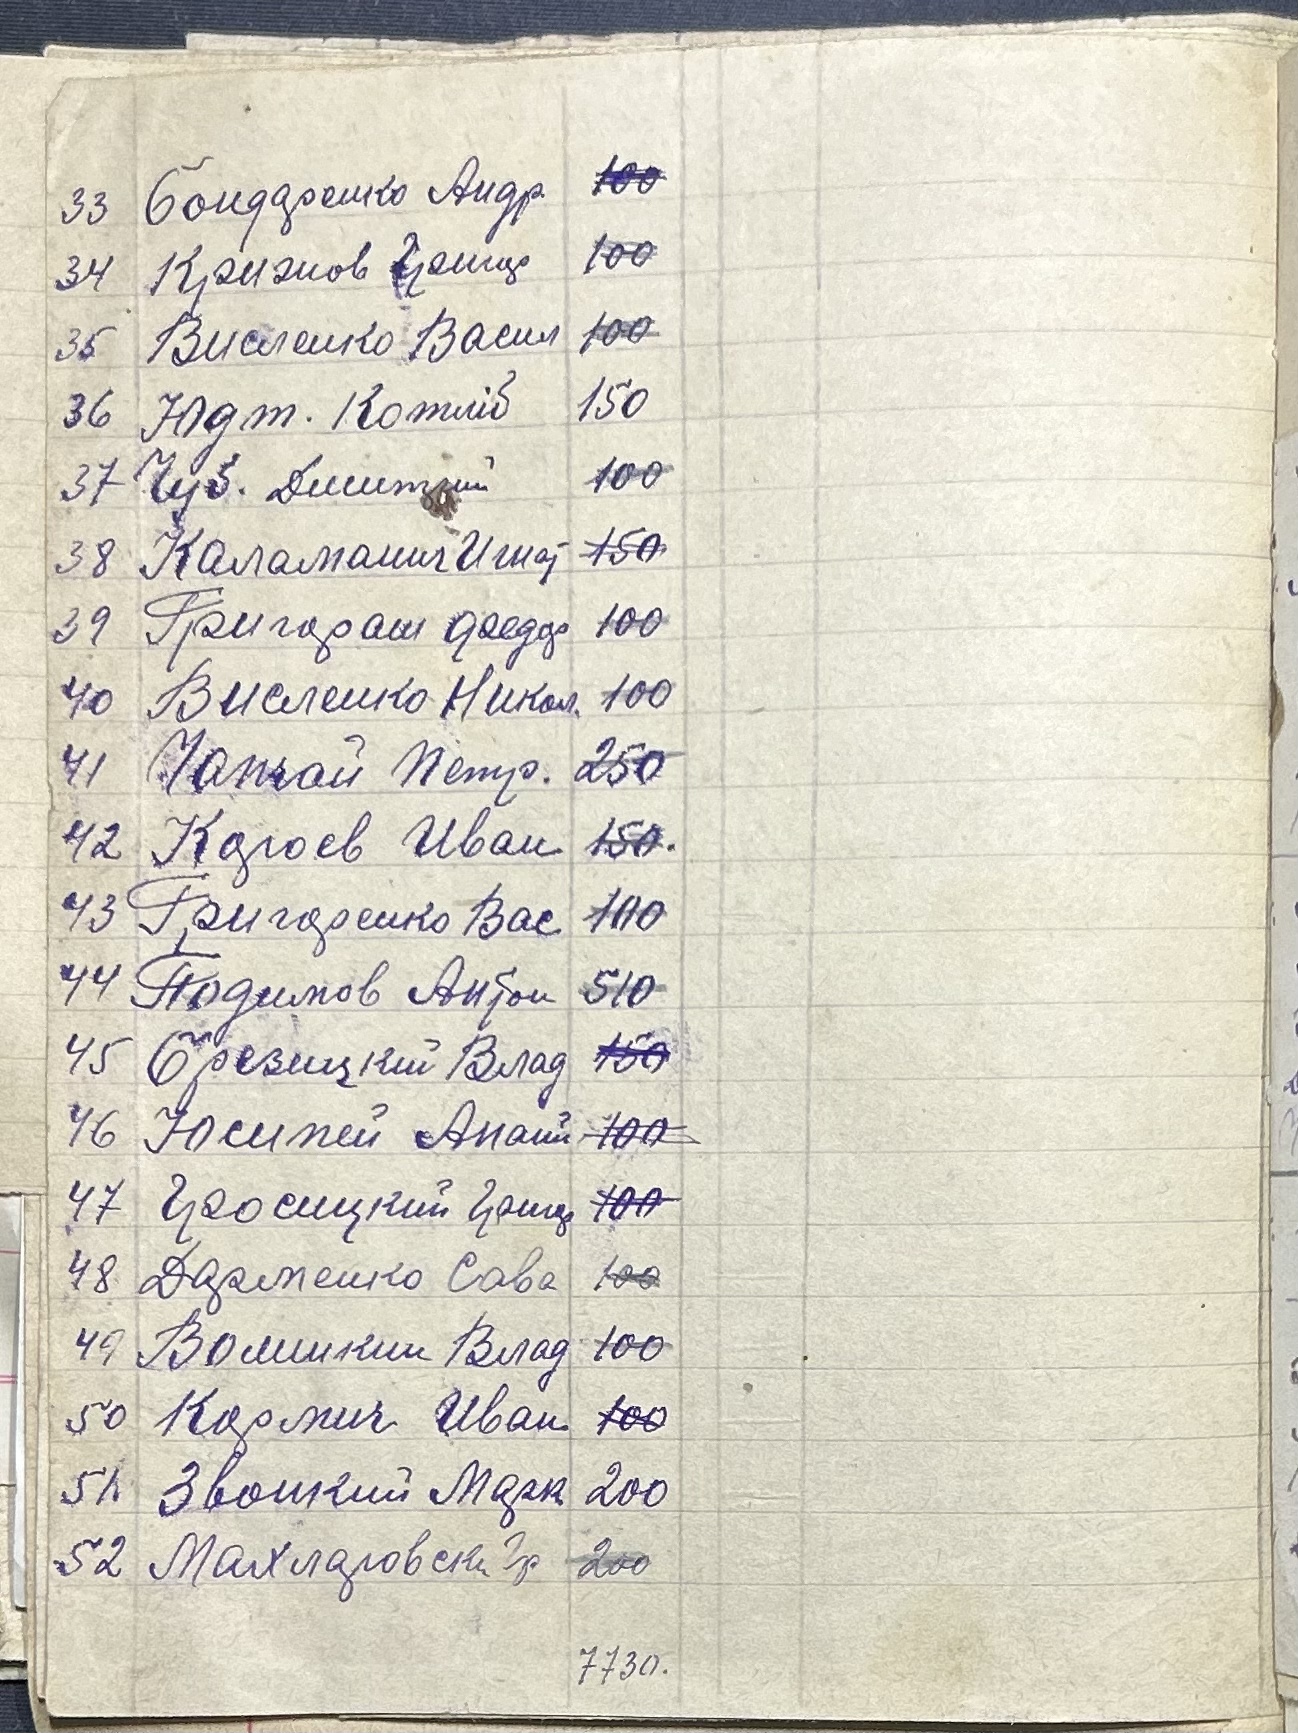 33 Бондаренко Андр. 100
34 Кризнов Григор 100
35 Висленко Васил 100
36 Юдт. Котлів 150
37 Чуб. Дмитрий 100
38 Каламанич Игнат 150
39 Григораш Федор 100
40 Висленко Никол. 100
41 Чапчай Петр. 250
42 Кароєв Иван 150.
43 Григоренко Вас 100
44 Подимов Антон 510
45 Брезицкий Влад 150
46 Юсипей Анані 100
47 Гросицкий Григор 100
48 Дарменко Сава 100
49 Волишкин Влад 100
50 Кармич Иван 100
51. Звонкий Марк 200
52 Махларовски Гр 200
7730.